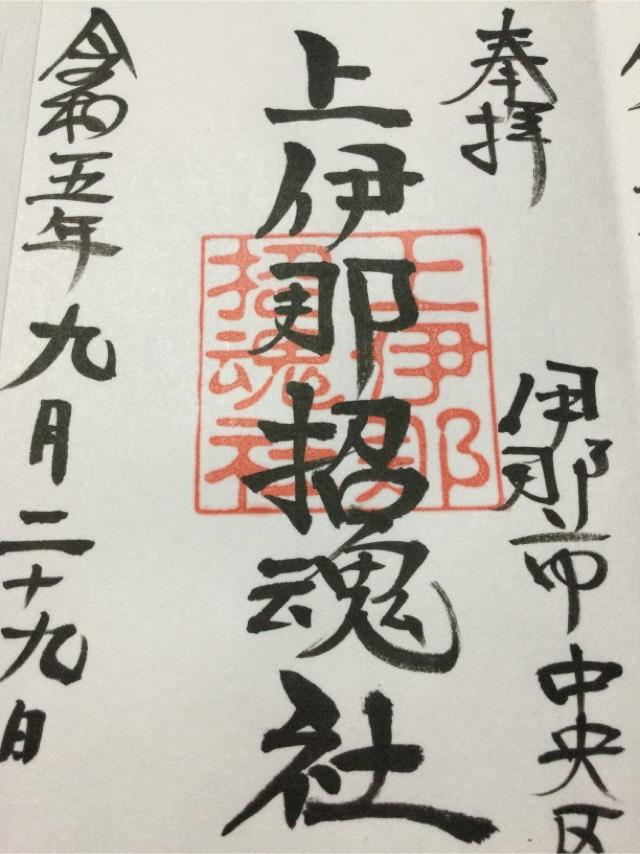 奉拝
伊那市中央区
上伊那招魂社
上伊那
招魂社
令和五年九月二十九日